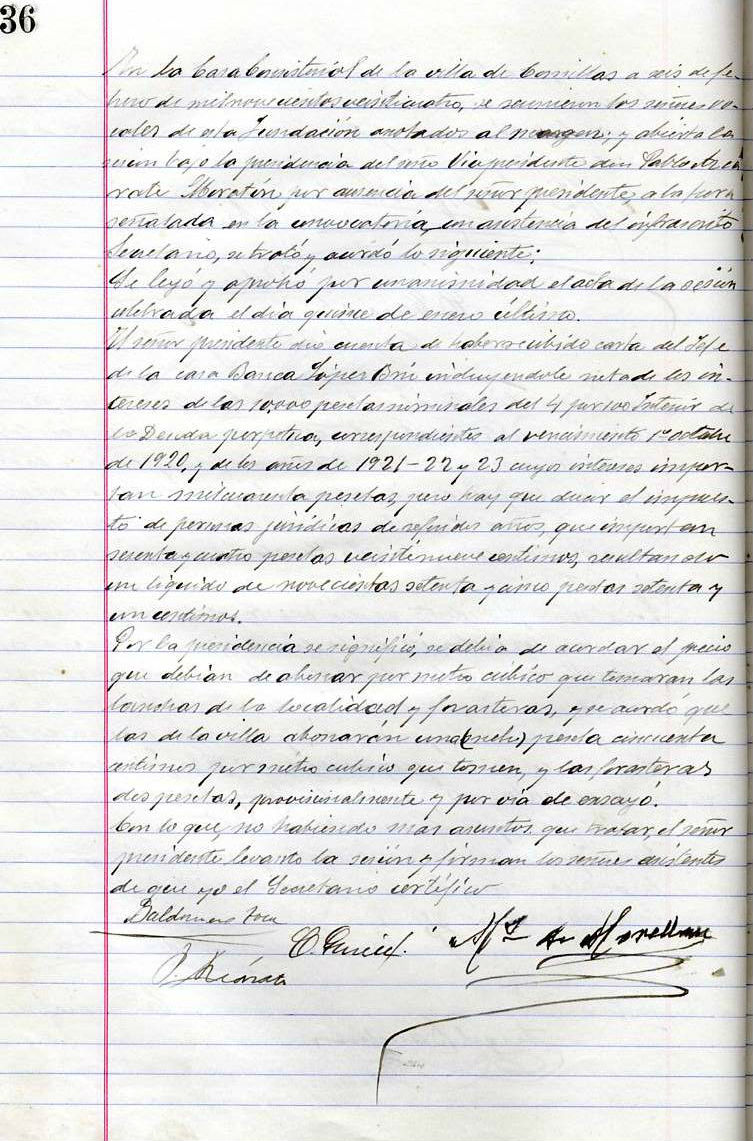 36
En la Casa Consistorial de la villa de Comillas a seis de fe-
brero de mil novecientos veinticuatro, se reunieron los señores vo-
cales de esta Fundación anotados al margen; y abierta la
sesión bajo la presidencia del señor Vicepresidente don Pablo Azca-
rate por ausencia del señor presidente, a la hora
señalada en la convocatoria, con asistencia del infrascrito
Secretario, se trató y acordó lo siguiente:
Se leyó y aprobó por unanimidad el acta de la sesión
celebrada el día quince de enero último.
El señor presidente dio cuenta de haber recibido carta del Jefe
de la casa Banca López Brú incluyendole nota de los in-
tereses de las 10,000 pesetas nominales del 4 por 100 Interior de
la Deuda perpetua, correspondientes al vencimiento 1º octubre
de 1920, y de los años de 1921-22 y 23 cuyos intereses impor-
tan mil cuarenta pesetas, pero hay que deducir el impues-
to de personas jurídicas de referidos años, que importan
sesenta y cuatro pesetas veintinueve centimos, resultando
un líquido de novecientas setenta y cinco pesetas setenta y
un centimos.
Por la presidencia se significó, se debía de acordar el precio
que debían de abonar por metro cúbico que tomaran las
lanchas de la localidad y forasteras, y se acordó que
las de la villa abonarán una peseta cincuenta
centimos por metro cubico que tomen, y las forasteras
dos pesetas, provisionalmente y por vía de ensayo.
Con lo que, no habiendo mas asuntos que tratar, el señor
presidente levanto la sesión y firman los señores asistentes
de que yo el Secretario certifico
Baldomero